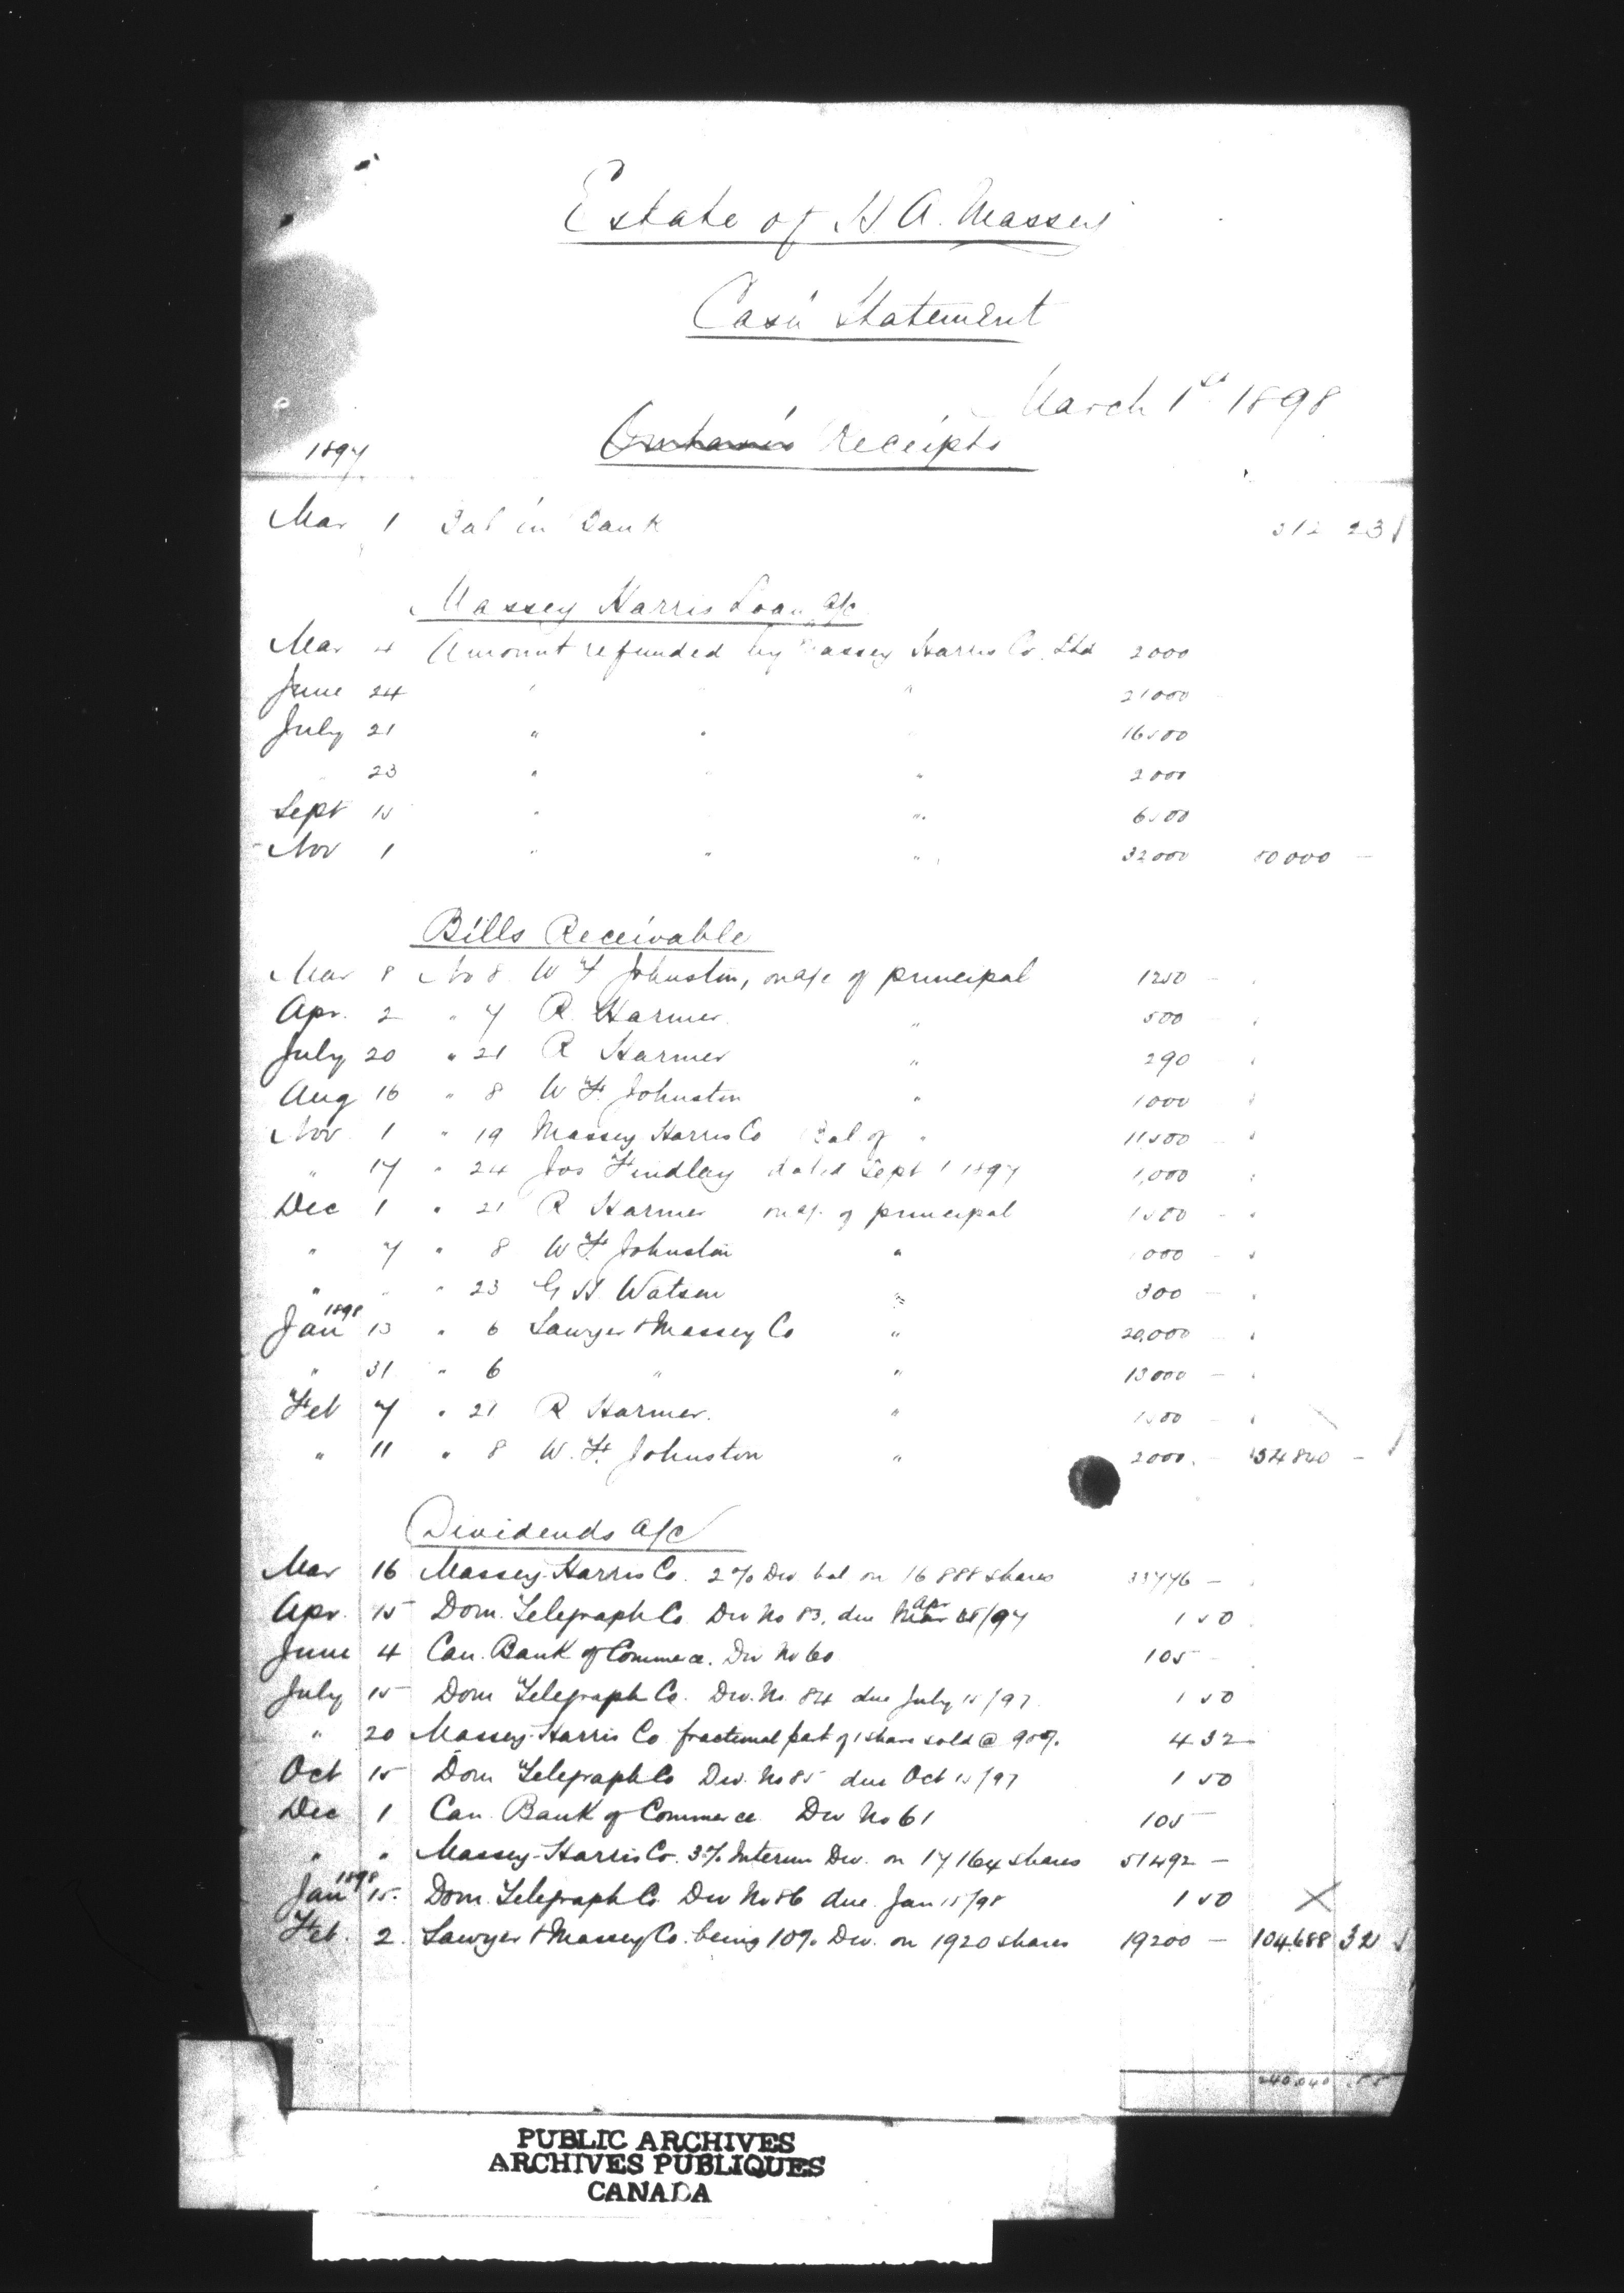 Estate of H A. Massey
Cash Statement
March 1st 1898
Receipts
1897
Mar 1 Bal in Bank 512 23
Massey Harris Loan a/c
Mar 4 Amount refunded by Massey Harris Co. Ltd 2000
June 24 " " " 21000
July 21 " " " 16500
23 " " " 2000
Sept 15 " " " 6500
Nov 1 " " " 32000 80000 —
Bills Receivable
Mar 8 No 8 W F Johnston, on a/c of principal 1250 —
Apr. 2 " 7 R. Harmer " 500 —
July 20 " 21 R Harmer " 290
Aug 16 " 8 W F. Johnston " 1000
Nov. 1 " 19 Massey Harris Co Bal of " 11500 —
" 17 " 24 Jos Findlay dated Sept 1 1897 1,000
Dec 1 " 21 R Harmer on a/c of principal 1500 —
" 7 " 8 W F. Johnston " 1000 —
" " " 23 G H. Watson " 300 —
Jan 1898 13 " 6 Sawyer & Massey Co " 20,000 —
" 31 " 6 " " 13000 —
Feb 7 " 21 R Harmer. " 1500 —
" 11 " 8 W. F. Johnston " 2000. — 54840 —
Dividends a/c
Mar 16 Massey-Harris Co. 2% Div. bal on 16888 shares 33776 —
Apr. 15 Dom. Telegraph Co. Div No 83, due Apr /97 1 50
June 4 Can. Bank of Commerce. Div No 60 105 —
July 15 Dom Telegraph Co. Div. No. 84 due July 15/97 1 50
" 20 Massey-Harris Co fractional part of 1 share sold @ 90% 4 32
Oct 15 Dom Telegraph Co Div. No 85 due Oct 15/97 1 50
Dec 1 Can. Bank of Commerce Div No 61 105 —
" " Massey-Harris Co. 3% Interim Div. on 17164 shares 51492 —
Jan 1898 15. Dom. Telegraph Co Div No 86 due Jan 15/98 1 50 X
Feb. 2. Sawyer & Massey Co. being 10% Div. on 1920 shares 19200 — 104688 32
240,040 55
PUBLIC ARCHIVES
ARCHIVES PUBLIQUES
CANADA